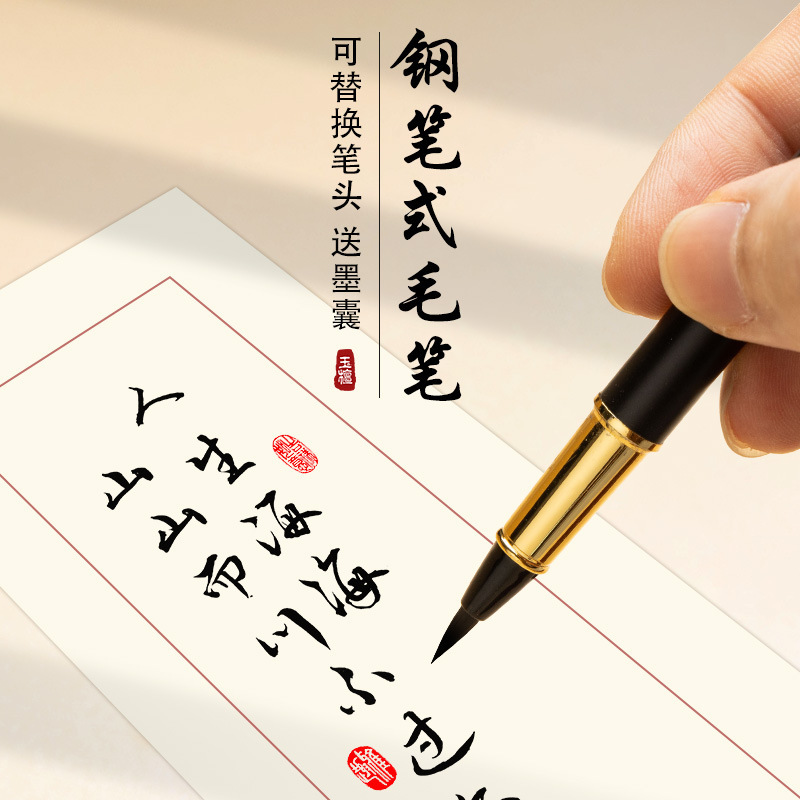 钢笔式毛笔
可替换笔头 送墨囊
玉檀
人生海海
山山而川不过